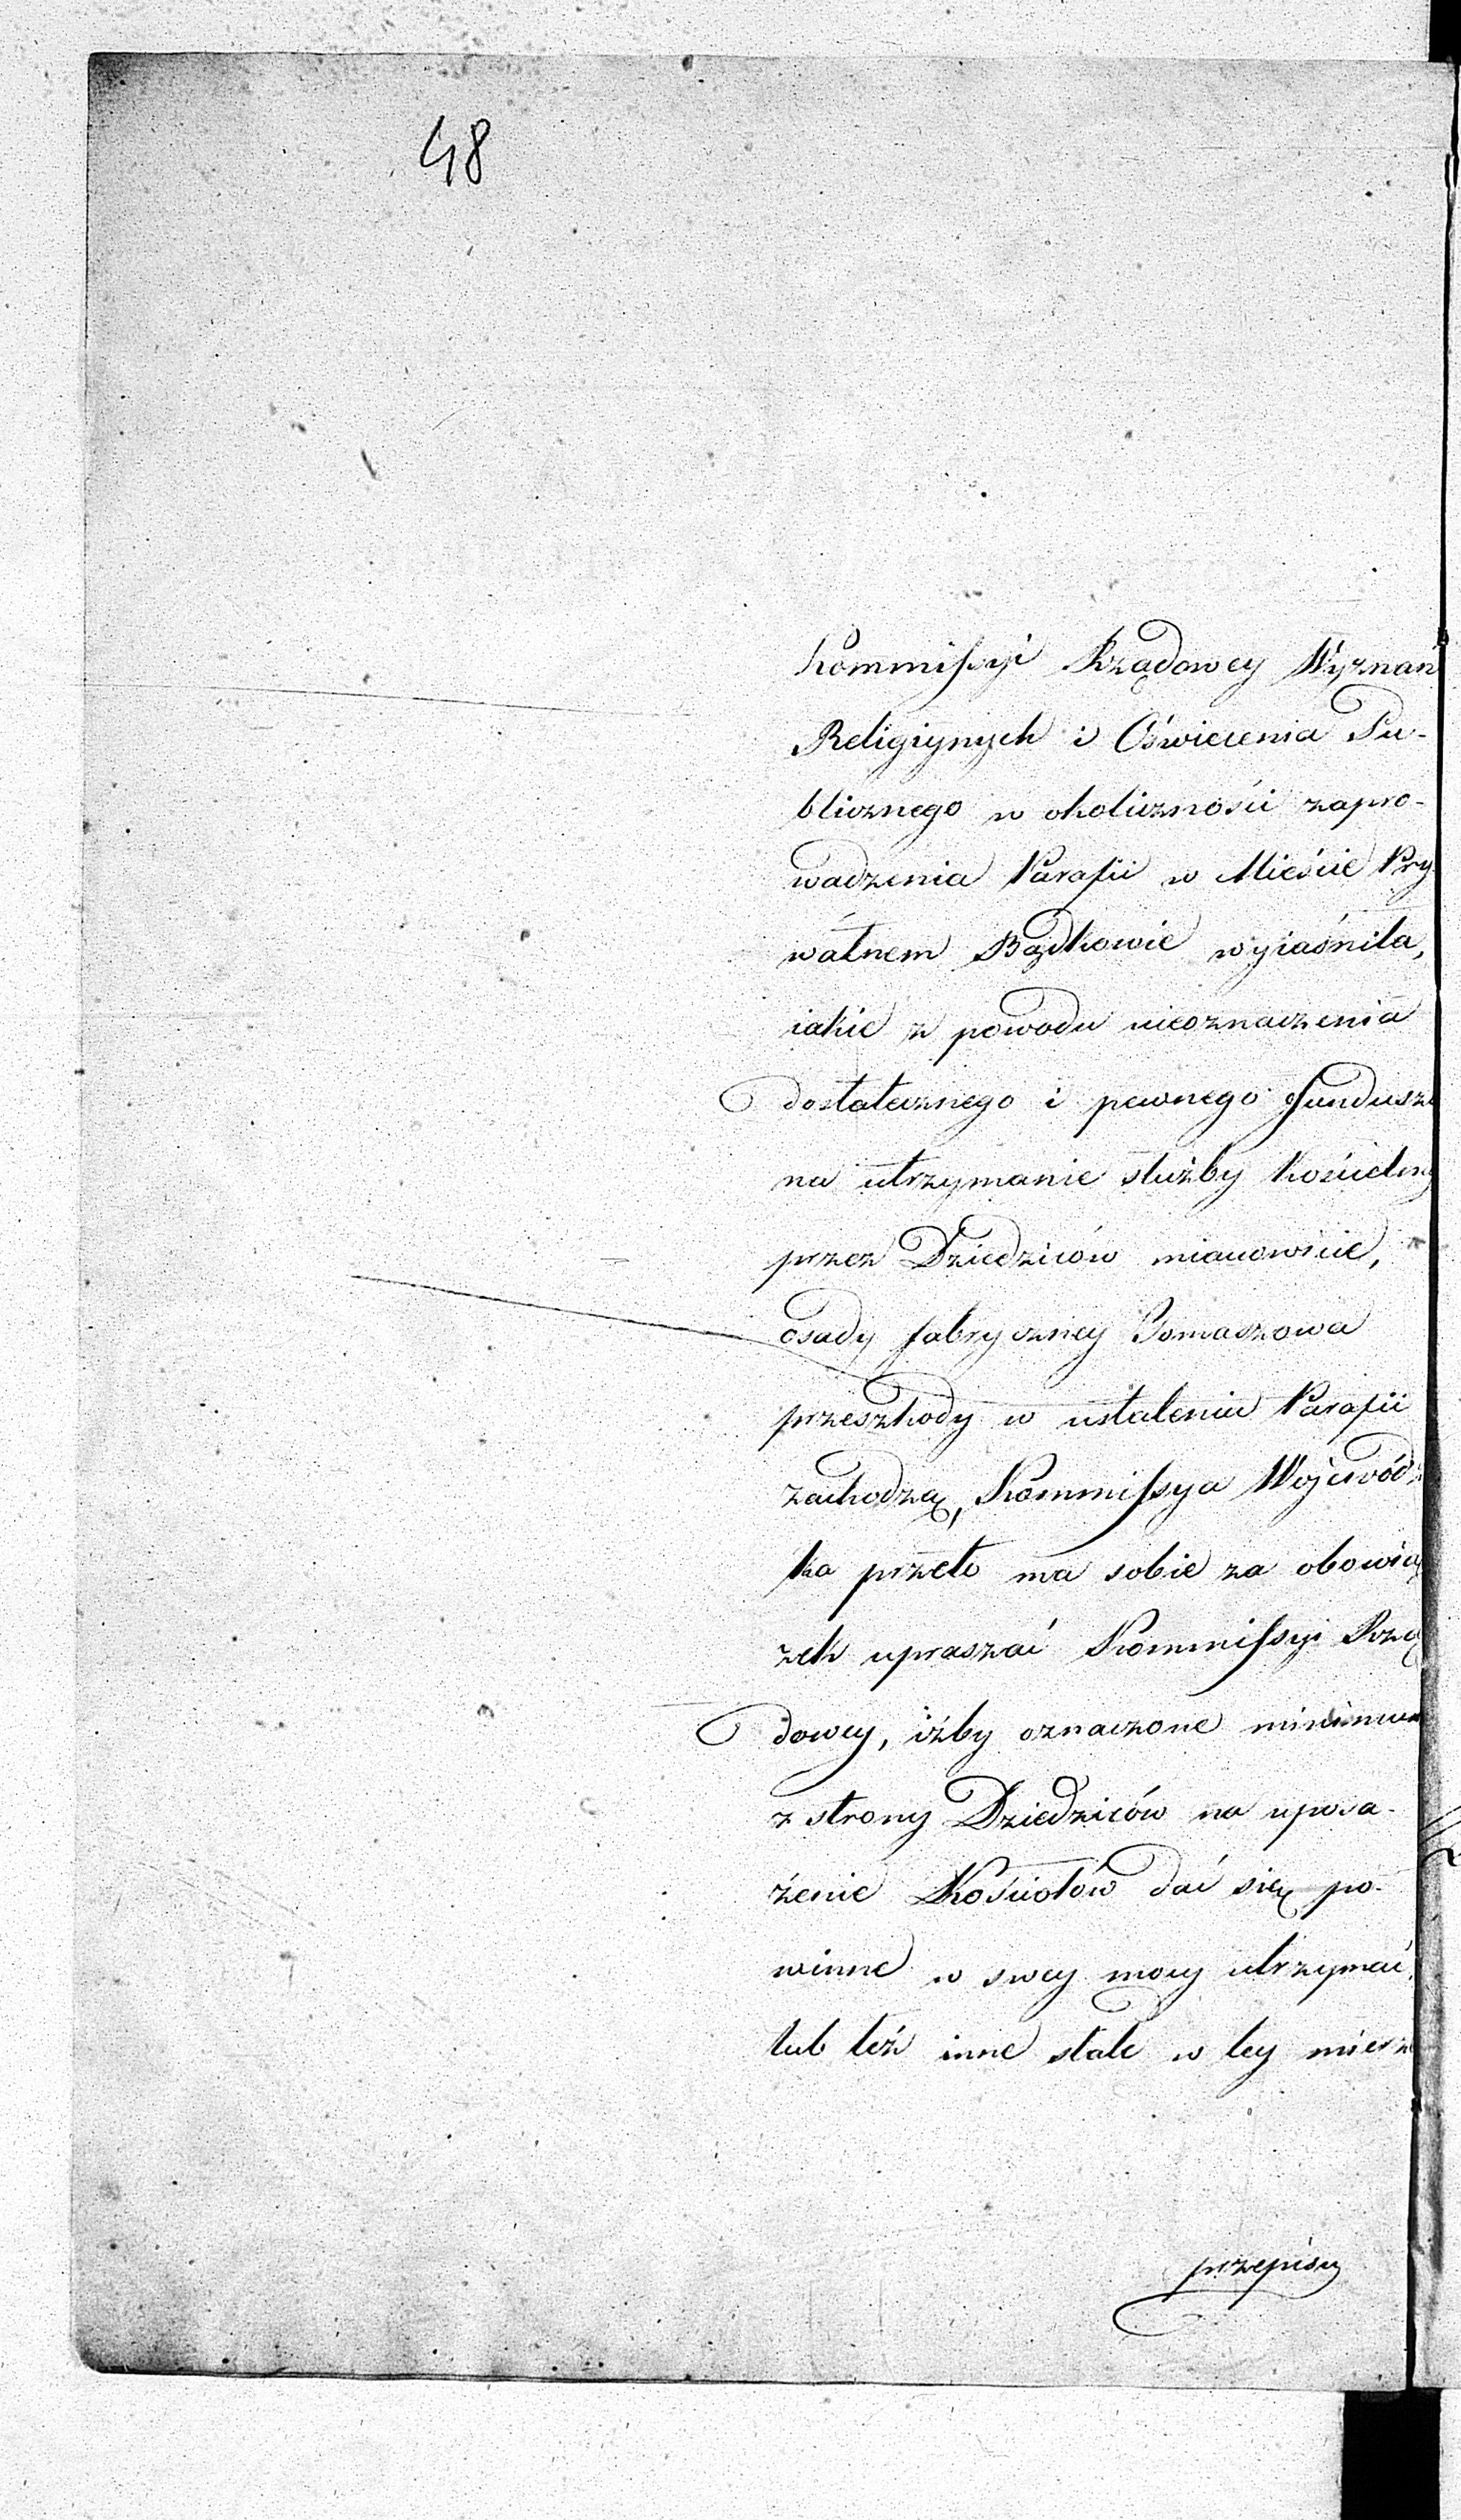 48
Kommissyi Rządowey Wyznań
Religiynych i Oświecenia Pu-
blicznego w okoliczności zapro-
wadzenia Parafii w Mieście Pry
watnem Będkowie wyiaśniła,
iakie z powodu nieoznaczenia
dostatecznego i pewnego funduszu
na utrzymanie służby Kościelney
przez Dziedziców mianowicie,
osady fabryczney Tomaszowa
przeszkody w ustaleniu Parafii
zachodzą, Kommissya Wojewódz
ka przeto ma sobie za obowią
zek upraszać Kommissyi Rzą
dowey, iżby oznaczone minimum
z strony Dziedziców na uposa-
żenie Kościołów dać się po-
winne w swey mocy utrzymać,
lub też inne stałe w tey mierze
przepisy